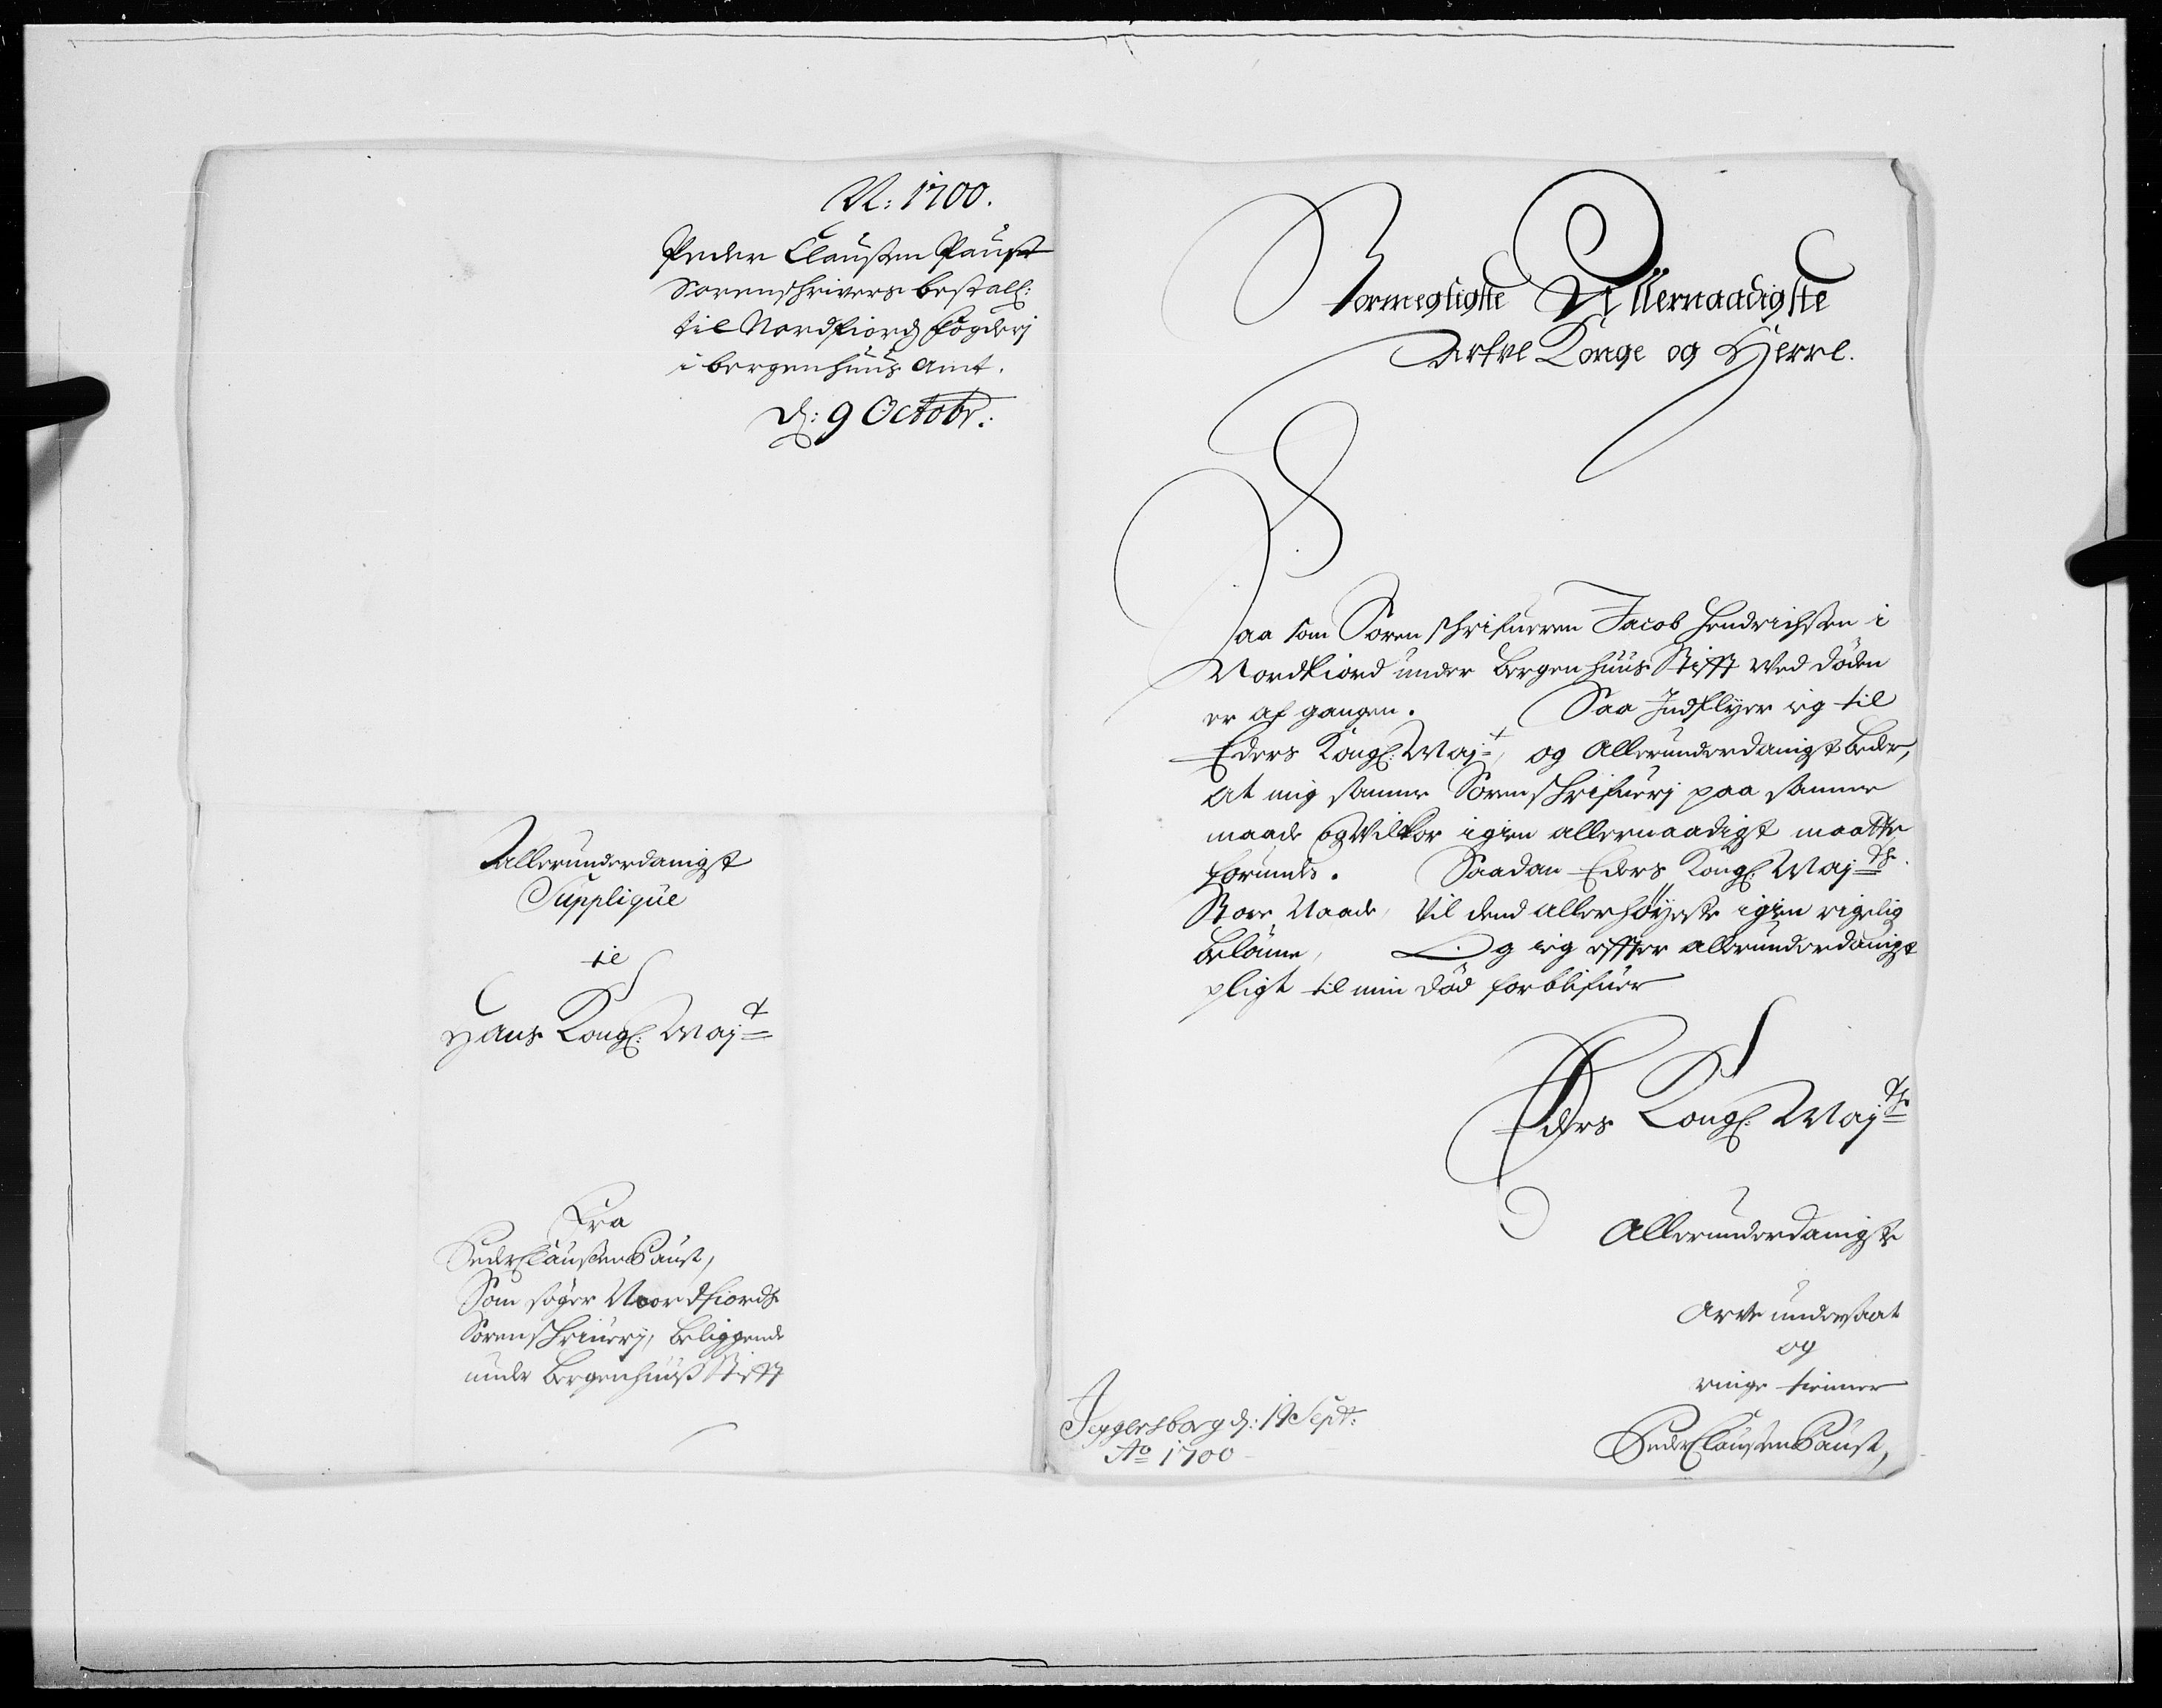 N: 1700.
Peder Claussen Paust
Sorenschrivers bestall:
til Nordfiords fogderj
i bergenhuus amt.
d: 9 Octobr:
Allerunderdanigst
Supplique
til
Hans Kongl: Maj<sup>t</sup>
Fra
Peder Claussen Paust,
Som søger Noordfiords
Sorenschriuerj, beliggende
under Bergenhuus Stifft
Stormegtigste Allernaadigste
Arfve Konge og Herre.
Saa som Sorenschrifueren Jacob Hendrichsen i
Nordfiord under Bergenhuus Stifft ved døden
er afgangen. Saa Indflyer ieg til
Eders Kongl: Maj<sup>t</sup>, og Allerunderdanigst beder,
at mig samme Sorenschrifuerj paa samme
maade og Vilkor igien allernaadigst maatte
forundes. Saadan Eders Kongl: Maj<sup>ts</sup>
Store Naade, Vil dend allerhøyeste igien rigelig
belønne, Og ieg effter allerunderdanigst
pligt til min død forblifuer
Eders Kongl: Maj<sup>ts</sup>
Allerunderdanigste
Arve undersaat
og
ringe tienner
Peder Claussen Paust,
Jeggersborg d: 19 Sept:
A<sup>o</sup> 1700